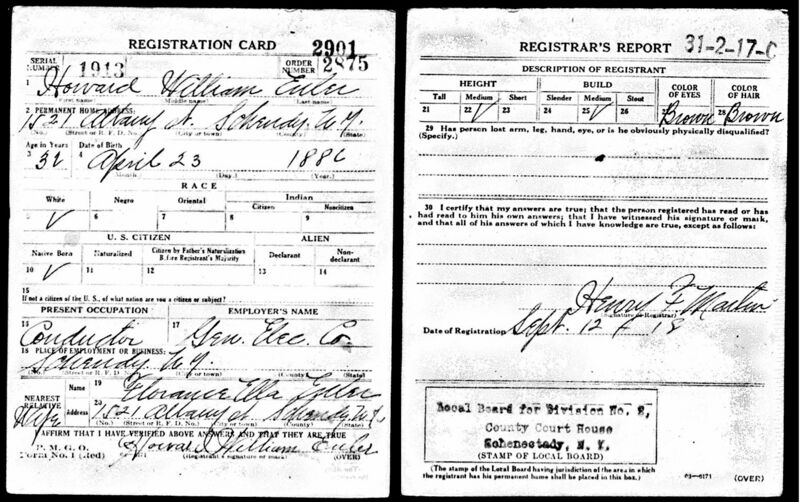 REGISTRATION CARD 2901
SERIAL NUMBER 1913 ORDER NUMBER 2875
Howard William Euler
(First name) (Middle name) (Last name)
2 PERMANENT HOME ADDRESS:
1521 Albany St. Schendy. N.Y.
(No.) (Street or R. F. D. No.) (City or town) (County) (State)
Age in Years Date of Birth
3 32 4 April 23 1886
Month. (Day.) (Year.)
RACE
White Negro Oriental Indian
Citizen Noncitizen
5 ✓ 6 7 8 9
U. S. CITIZEN ALIEN
Native Born Naturalized Citizen by Father's Naturalization Before Registrant's Majority Declarant Non-declarant
10 ✓ 11 12 13 14
15
If not a citizen of the U. S., of what nation are you a citizen or subject?
PRESENT OCCUPATION EMPLOYER'S NAME
16 Conductor 17 Gen. Elec. Co.
18 PLACE OF EMPLOYMENT OR BUSINESS:
Schendy N.Y.
(No.) (Street or R. F. D. No.) (City or town) (County) (State)
NEAREST RELATIVE Name 19 Florance Ella Euler
Wife Address 20 1521 Albany St Schendy N.Y.
(No.) (Street or R. F. D. No.) (City or town) (County) (State)
I AFFIRM THAT I HAVE VERIFIED ABOVE ANSWERS AND THAT THEY ARE TRUE
P. M. G. O.
Form No. 1 (Red) Howard William Euler
(Registrant's signature or mark) (OVER)
REGISTRAR'S REPORT 31-2-17-C
DESCRIPTION OF REGISTRANT
HEIGHT BUILD COLOR OF EYES COLOR OF HAIR
Tall Medium Short Slender Medium Stout
21 22 ✓ 23 24 25 ✓ 26 27 Brown 28 Brown
29 Has person lost arm, leg, hand, eye, or is he obviously physically disqualified?
(Specify.)
30 I certify that my answers are true; that the person registered has read or has
had read to him his own answers; that I have witnessed his signature or mark,
and that all of his answers of which I have knowledge are true, except as follows:
Henry F Martin
(Signature of Registrar)
Date of Registration Sept. 12 - 18
Local Board for Division No. 2,
County Court House
Schenectady, N. Y.
(STAMP OF LOCAL BOARD)
(The stamp of the Local Board having jurisdiction of the area in which
the registrant has his permanent home shall be placed in this box.)
03—6171 (OVER)